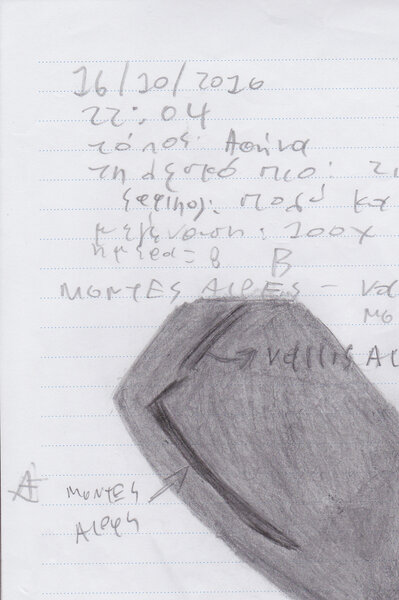 16/10/2016
22:04
τόπος: Αθήνα
τηλεσκόπιο:
πολύ
μεγένθυση: 100x
ημέρα = 8 B
MONTES ALPES –
vallis
MONTES
Alpes